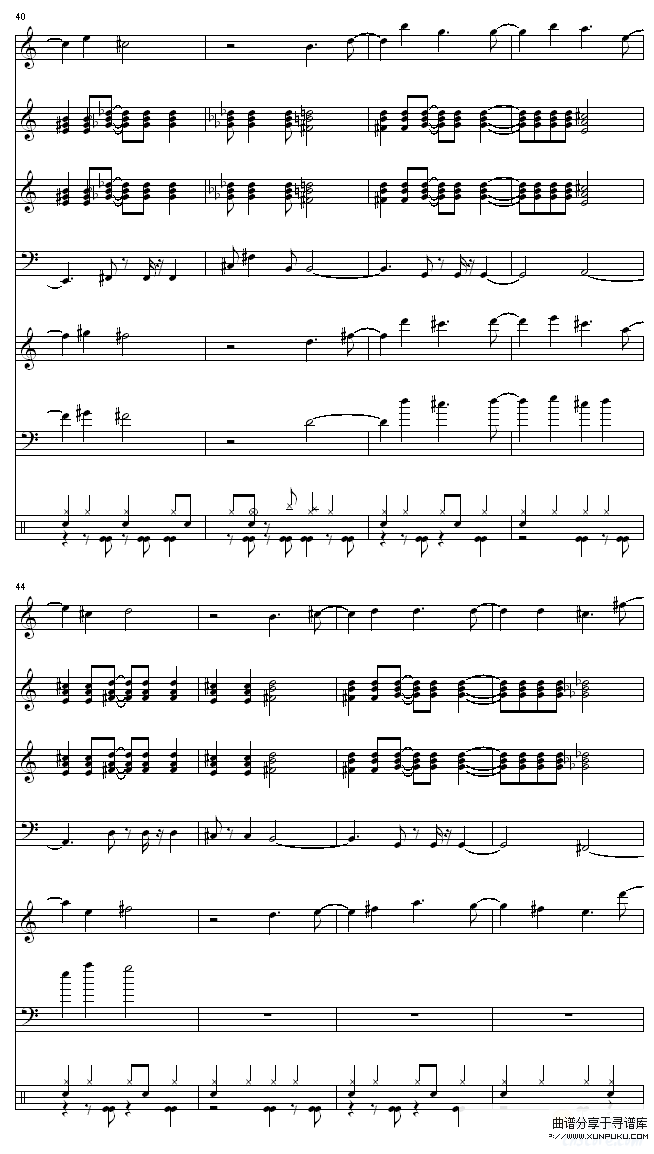 40
44
曲谱分享于寻谱库
?://WWW.XUNPUKU.COM